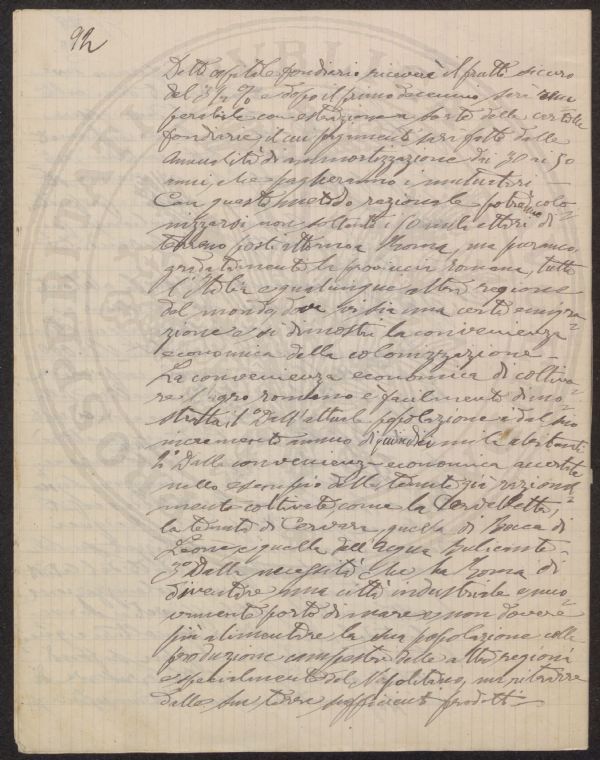 92
Detto capitale fondiario riceverà il frutto sicuro
del 3 1/2 % e dopo il primo decennio sarà
con estrazione a sorte delle cartelle
fondiarie il cui pagamento sarà fatto dalle
Annualità di ammortizzazione dai 30 ai 50
anni, che pagheranno i mutuatari
Con questo metodo razionale potranno colo-
nizzarsi non soltanto i 50 mila ettari di
terreno posti attorno a Roma, ma pure anco
gradatamente la provincia romana, tutta
l'Italia e qualunque altra regione
del mondo, dove vi sia una certa emigra-
zione e si dimostri la convenienza
economica della colonizzazione -
La convenienza economica di coltiva-
re l'agro romano è facilmente dimo-
strata, 1° Dall'attuale popolazione e dal suo
incremento annuo di quindici mila abitanti
2° Dalla convenienza economica accertata
nello esempio delle tenute già razional-
mente coltivate, come la Cervelletta,
la tenuta di Cervara, quella di Bocca di
Leone, e quella dell'Acqua Bulicante -
3° Dalla necessità che ha Roma di
diventare una città industriale e nuo-
vamente porto di mare e non dovere
più alimentare la sua popolazione colla
produzione campestre delle altre regioni
e specialmente del Napolitano, ma ritrarre
dalle sue terre sufficienti prodotti -